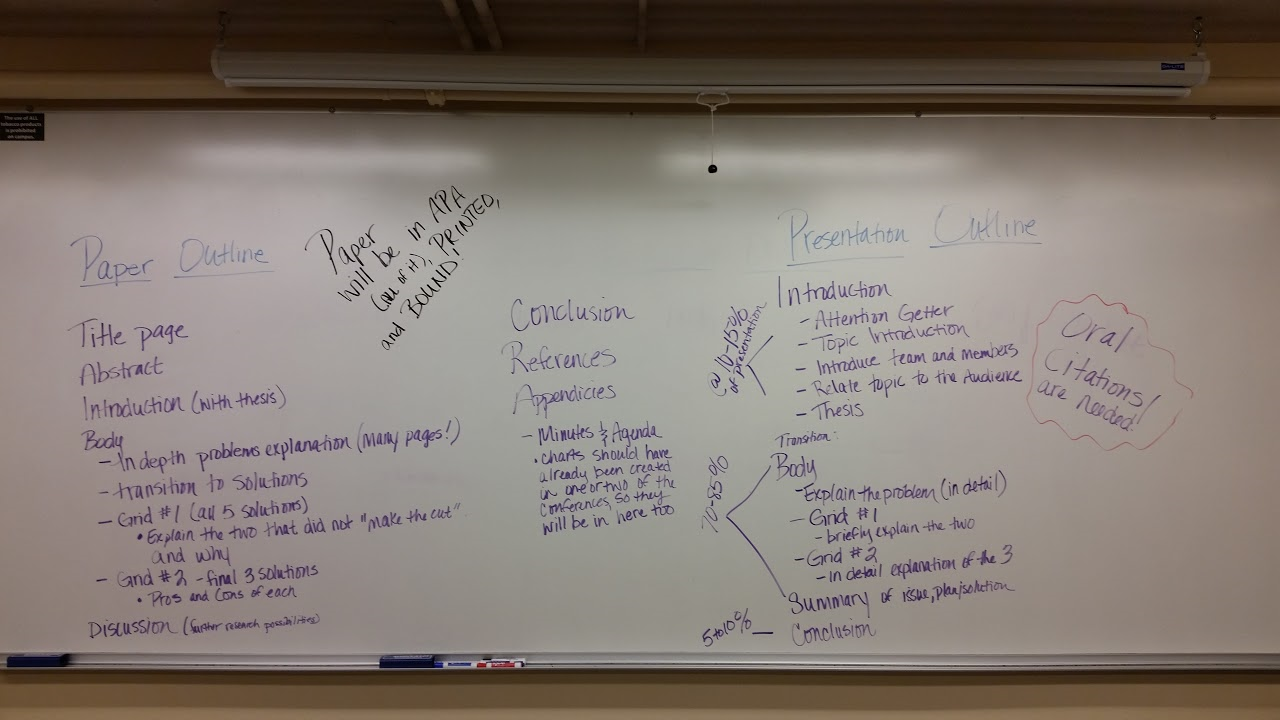 The use of ALL
tobacco products
is prohibited
on campus.
Paper Outline
Paper
will be in APA
(all of it), PRINTED,
and BOUND!
Title page
Abstract
Introduction (with thesis)
Body
- In depth problems explanation (many pages!)
- transition to solutions
- Grid #1 (all 5 solutions)
• Explain the two that did not "make the cut"
and why
- Grid #2 - final 3 solutions
• Pros and Cons of each
Discussion (further research possibilities)
Conclusion
References
Appendicies
- Minutes & Agenda
• charts should have
already been created
in one or two of the
conferences, so they
will be in here too
Presentation Outline
@ 10-15%
of presentation
Introduction
- Attention Getter
- Topic Introduction
- Introduce team and members
- Relate topic to the Audience
- Thesis
Transition:
70-85%
Body
- Explain the problem (in detail)
- Grid #1
- briefly explain the two
- Grid #2
- in detail explanation of the 3
Summary of issue, plan/solution
5 to 10% — Conclusion
Oral
Citations
are needed!